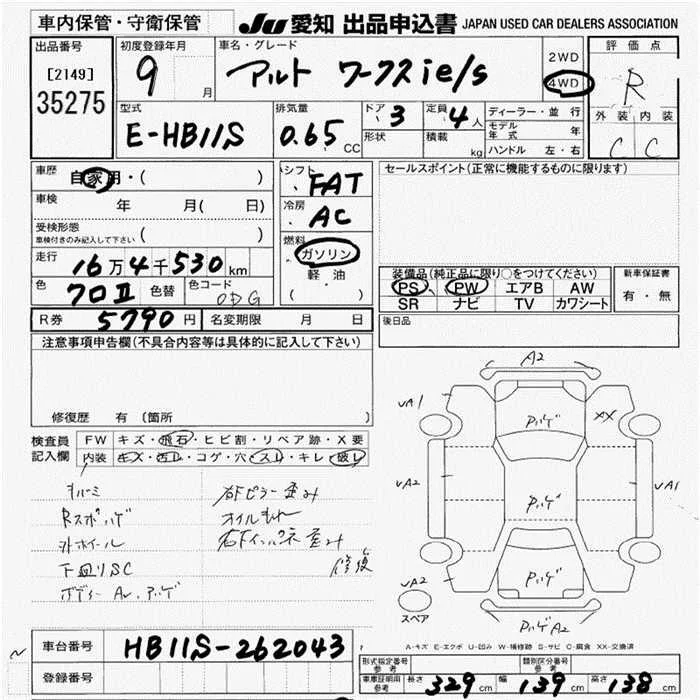 車内保管・守衛保管
JU 愛知 出品申込書 JAPAN USED CAR DEALERS ASSOCIATION
出品番号
[2149]
35275
初度登録年月
9 月
車名・グレード
アルト ワークスie/s
2WD
4WD
評価点
R
外装 内装
C C
型式
E-HB11S
排気量
0.65 CC
ドア 3
形状
定員 4 人
積載 kg
ディーラー・並行
モデル年式 年
ハンドル 左・右
車歴
自家用・( )
車検
年 月( 日)
受検形態
車検付きのみ記入して下さい ( )
走行
16万4千530km
色 クロⅡ 色替 色コード
シフト FAT
冷房 AC
燃料
ガソリン
軽油
( )
セールスポイント(正常に機能するものに限ります)
装備品(純正品に限り○をつけてください)
PS PW エアB AW
SR ナビ TV カワシート
新車保証書
有・無
R券 5790円 名変期限 月 日
後日品
注意事項申告欄(不具合内容等は具体的に記入して下さい)
修復歴 有〔箇所
検査員
記入欄
FW キズ・飛石・ヒビ割・リペア跡・X要
内装 キズ・汚レ・コゲ・穴・スレ・キレ・破レ
右Fピラー歪み
Rスポハゲ オイルもれ
外ホイール
下回りSC 修復
A2
UA1
XX
ハゲ
UA2
ハゲ
UA1
ハゲ
UA2
スペア
ハゲA2
A-キズ E-エクボ U-凹み W-補修跡 S-サビ C-腐食 XX-交換済
車台番号 HB11S-262043
登録番号
形式指定番号 参考
類別区分番号 参考
車庫証明用 参考 長さ 329cm 幅 139cm 高さ 138cm